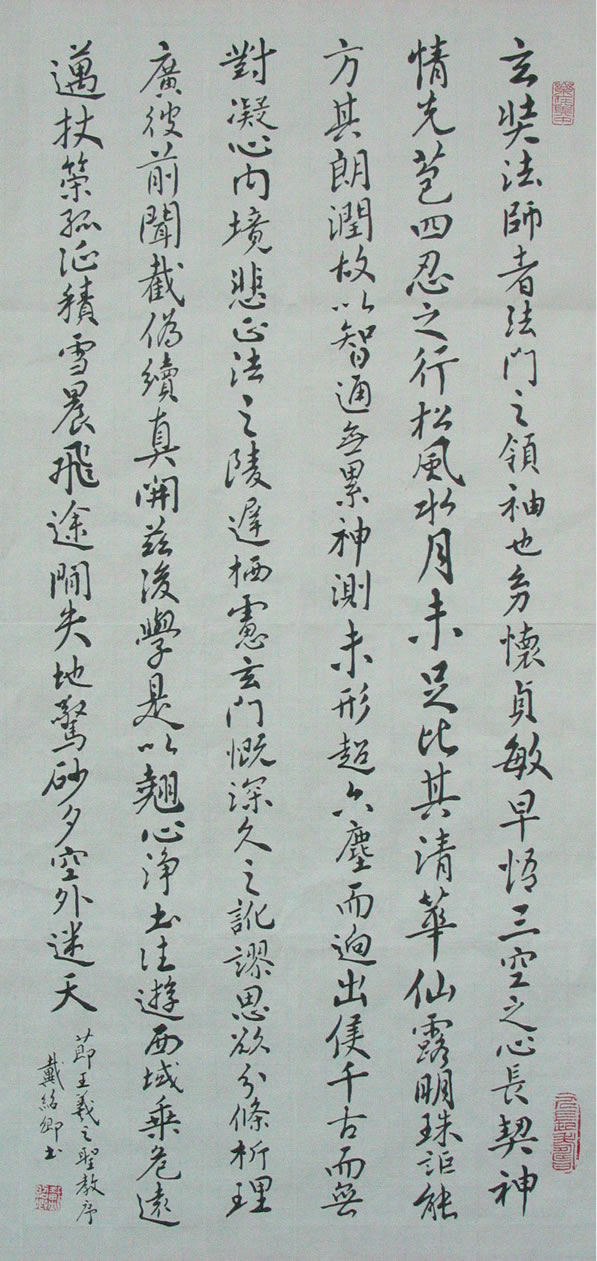 玄奘法師者法門之領袖也幼懷貞敏早悟三空之心長契神
情先苞四忍之行松風水月未足比其清華仙露明珠詎能
方其朗潤故以智通無累神測未形超六塵而迥出隻千古而無
對凝心內境悲正法之陵遲栖慮玄門慨深文之訛謬思欲分條析理
廣彼前聞截偽續真開茲後學是以翹心淨土往遊西域乘危遠
邁杖策孤征積雪晨飛途間失地驚砂夕空外迷天
節王羲之聖教序
戴紹卿書